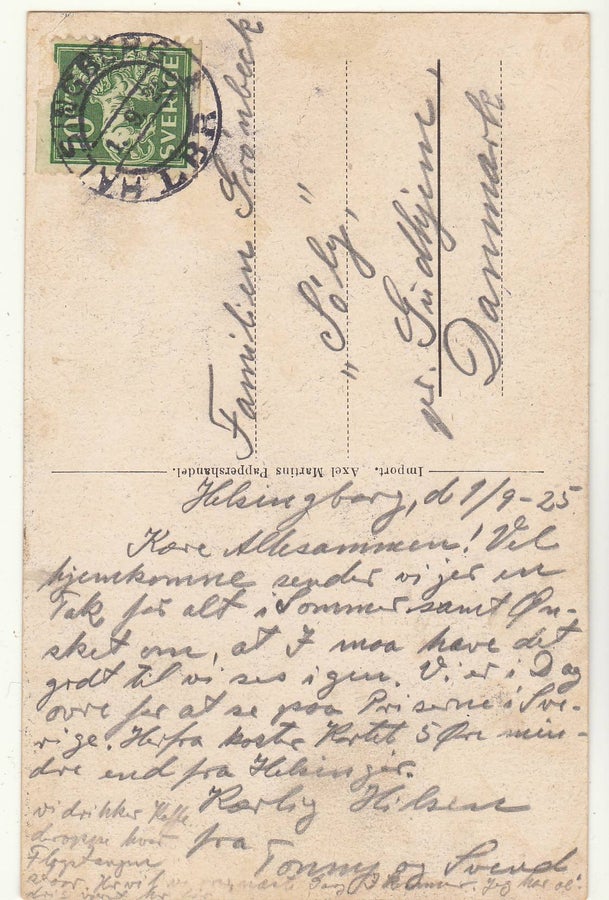 HÄLSINGBORG 1
LBR
SVERIGE
Familien Grönbeck
"Sóly"
pr. Gudhjem
Danmark
Import. Axel Martins Pappershandel.
Helsingborg, d 1/9-25
Kære Allesammen! Vel
hjemkomne sender vi jer en
Tak for alt i Sommer samt Øn-
sket om, at I maa have det
godt til vi ses igen. Vi er i Dag
ovre for at se paa Priserne i Sve-
rige. Herfra koster Kortet 5 Øre min-
dre end fra Helsingør.
Kærlig Hilsen
fra
Tonny og Svend
vi drikker Kaffe
deroppe hvor
Flagstangen
staar.